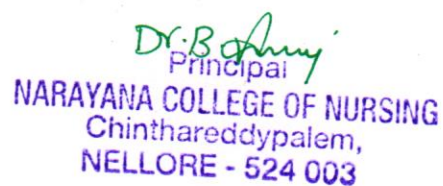 Dr. B
Principal
NARAYANA COLLEGE OF NURSING
Chinthareddypalem,
NELLORE - 524 003